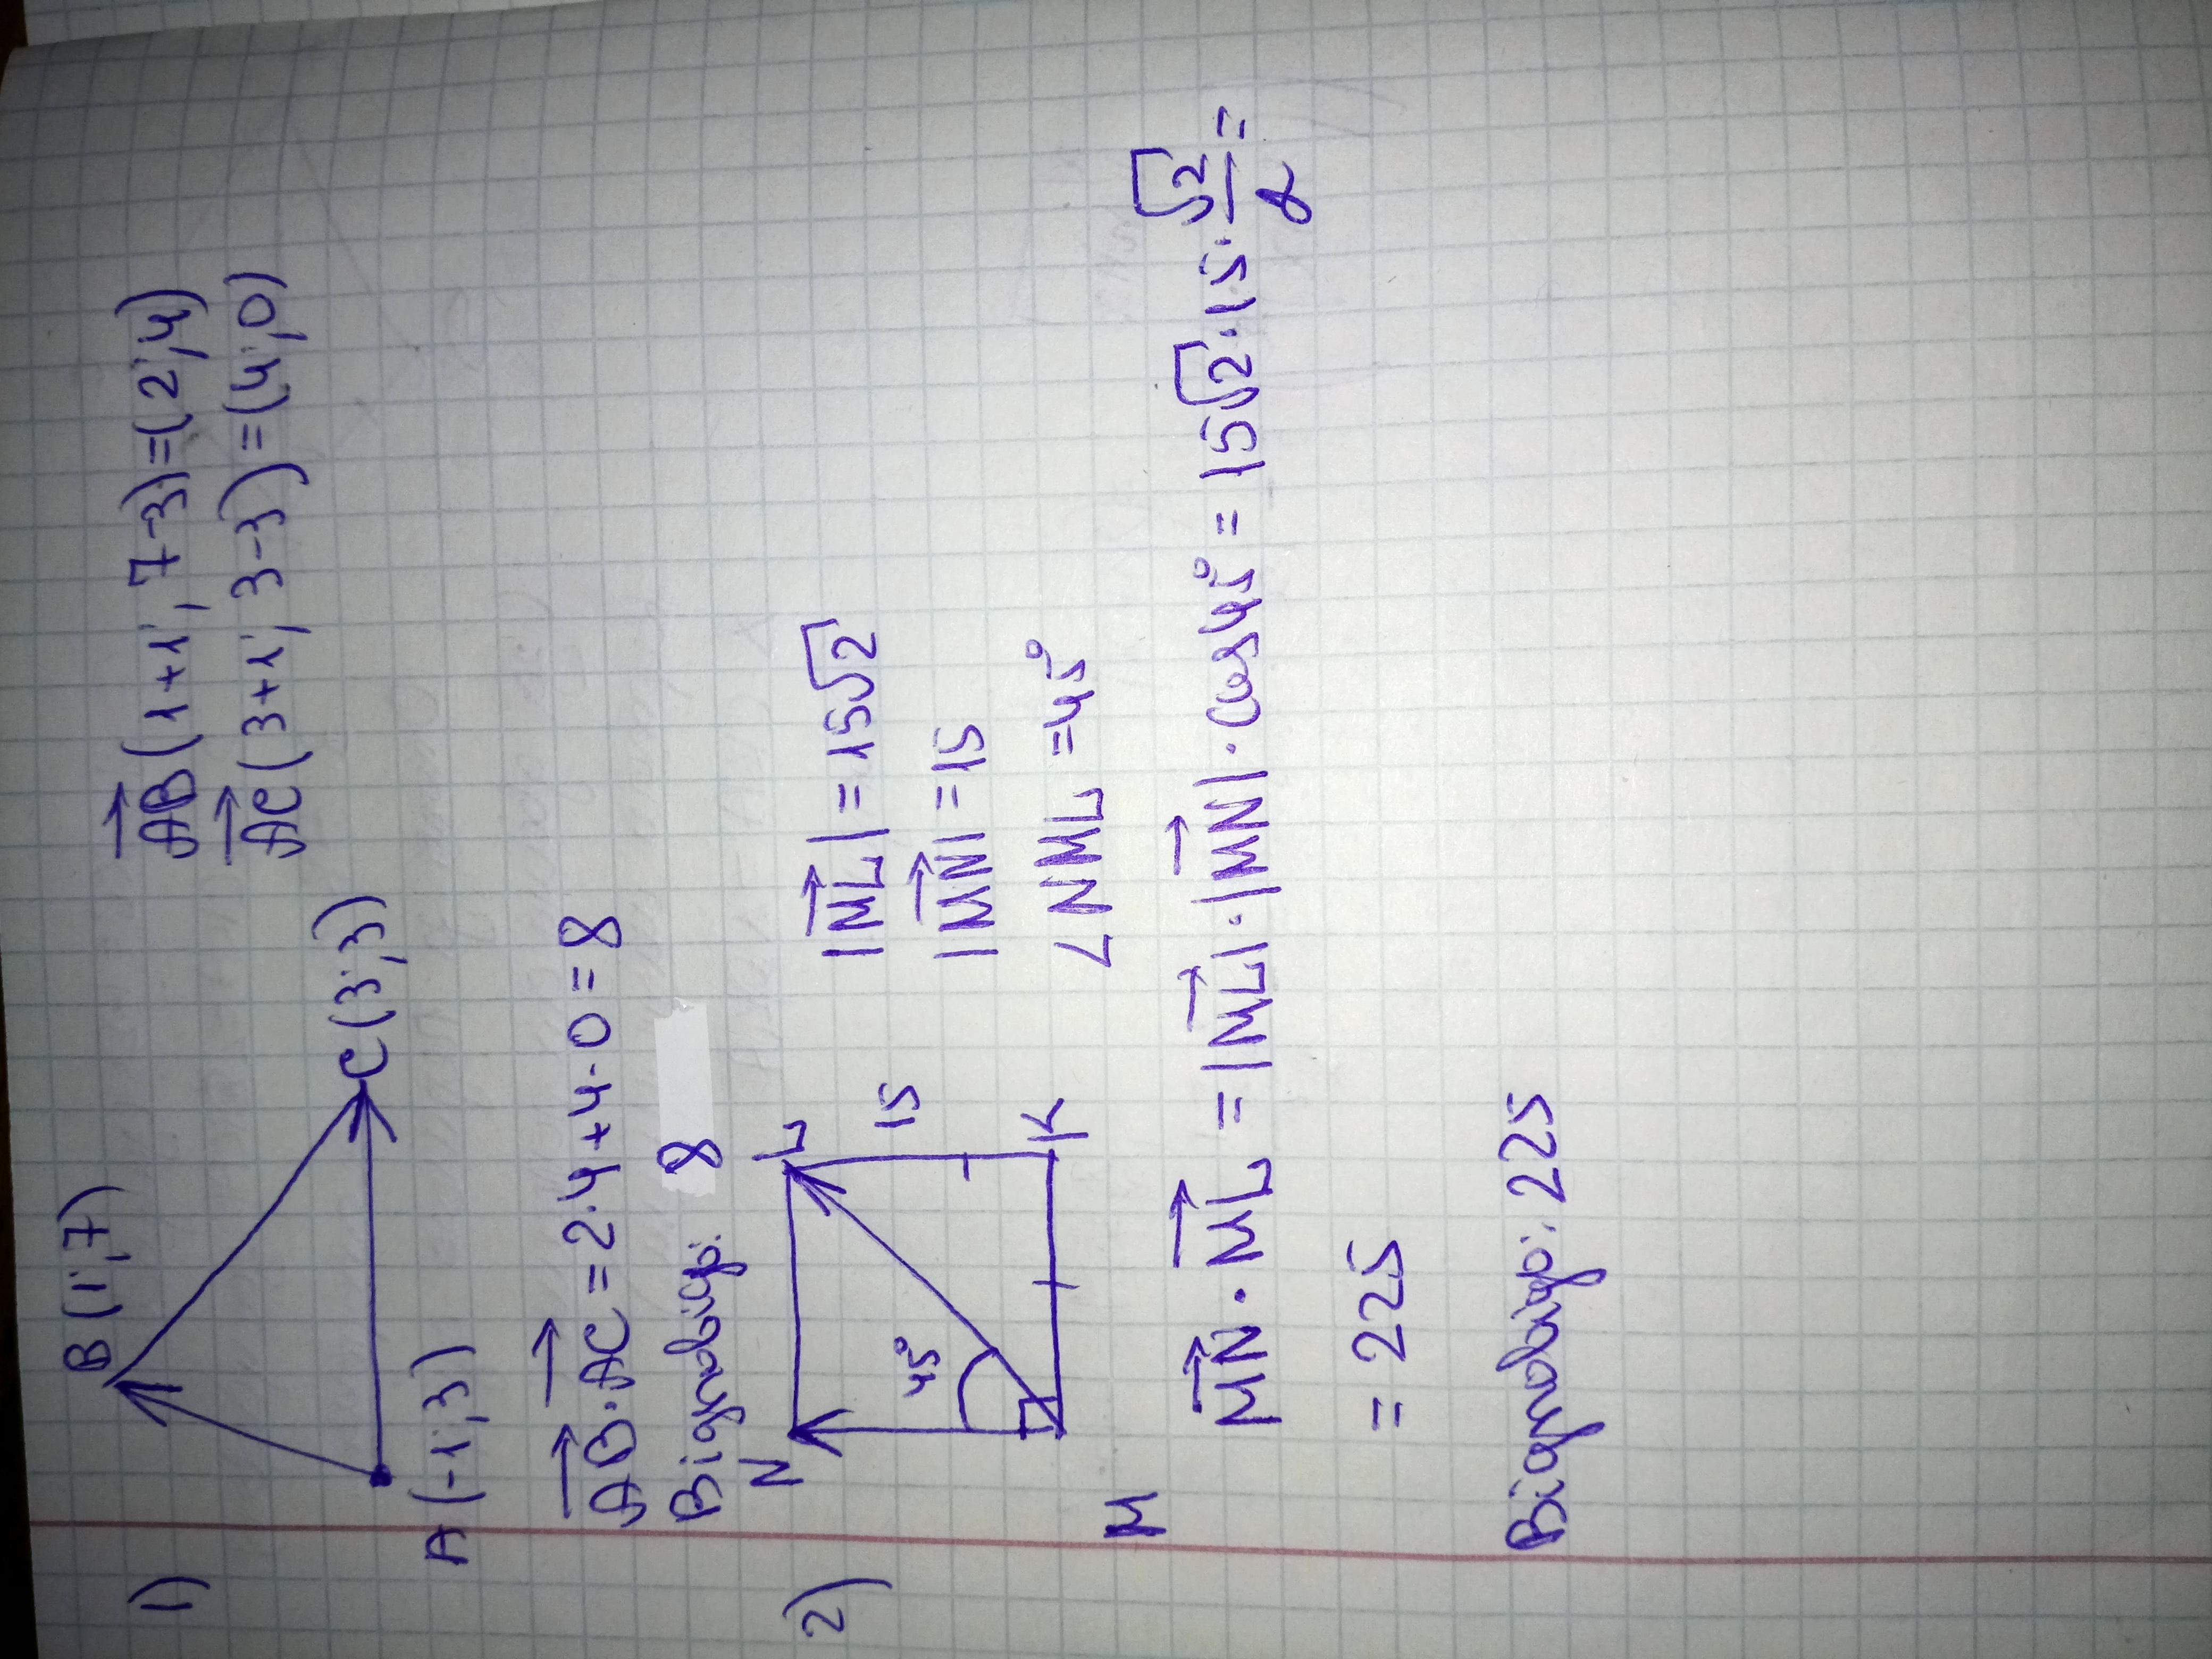 1)
B (1; 7)
A (-1; 3)
C (3; 3)
AB (1+1; 7-3) = (2; 4)
AC (3+1; 3-3) = (4; 0)
AB · AC = 2·4+4·0 = 8
Відповідь: 8
2)
N
L
45°
15
M
K
|ML| = 15√2
|MN| = 15
∠NML = 45°
MN · ML = |ML| · |MN| · cos45° = 15√2 · 15 · √2/2 =
= 225
Відповідь: 225